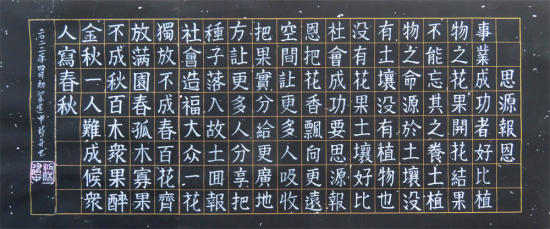 思源報恩
事業成功者好比植
物之花果開花結果
不能忘其之養土植
物之命源於土壤沒
有土壤沒有植物也
沒有花果土壤好比
社會成功要思源報
恩把花香飄向更遠
空間讓更多人吸收
把果實分給更廣地
方讓更多人分享把
種子落入故土囬報
社會造福大众一花
獨放不成春百花齊
放满園春孤木寡果
不成秋百木衆果醉
金秋一人難成候衆
人寫春秋
年四月初